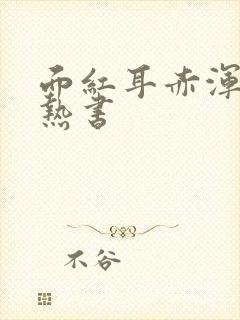 面紅耳赤渾
熱書
不谷